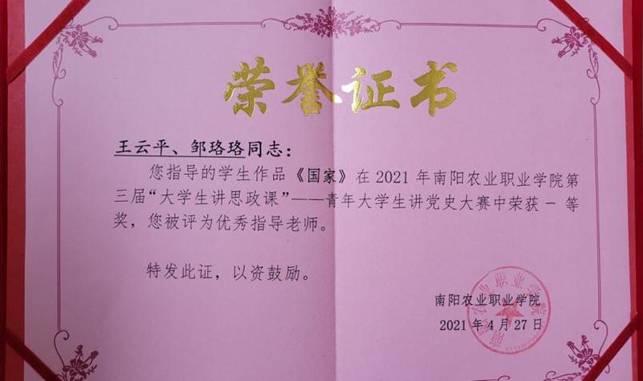 荣誉证书
王云平、邹珞珞同志：
您指导的学生作品《国家》在2021年南阳农业职业学院第
三届“大学生讲思政课”——青年大学生讲党史大赛中荣获一等
奖，您被评为优秀指导老师。
特发此证，以资鼓励。
南阳农业职业学院
2021年4月27日